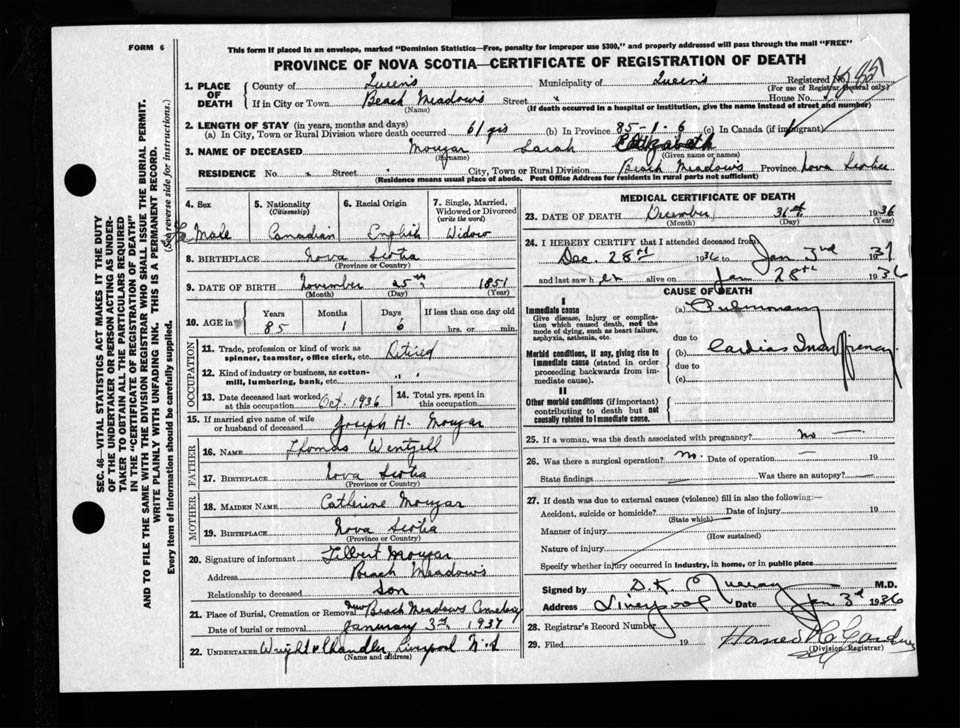 FORM 6
This form if placed in an envelope, marked "Dominion Statistics—Free, penalty for improper use $300," and properly addressed will pass through the mail "FREE"
PROVINCE OF NOVA SCOTIA—CERTIFICATE OF REGISTRATION OF DEATH
1. PLACE OF DEATH County of Queen's Municipality of Queen's Registered No.
(For use of Registrar General only)
If in City or Town Beach Meadows Street House No.
(Name) (If death occurred in a hospital or institution, give the name instead of street and number)
2. LENGTH OF STAY (in years, months and days)
(a) In City, Town or Rural Division where death occurred 61 yrs (b) In Province 85-1-6 (c) In Canada (if immigrant)
3. NAME OF DECEASED Mouzar Sarah Elizabeth
(Surname) (Given name or names)
RESIDENCE No. Street City, Town or Rural Division Beach Meadows Province Nova Scotia
(Residence means usual place of abode. Post Office Address for residents in rural parts not sufficient)
4. Sex 5. Nationality (Citizenship) 6. Racial Origin 7. Single, Married, Widowed or Divorced (write the word)
Fe Male Canadian English Widow
8. BIRTHPLACE Nova Scotia
(Province or Country)
9. DATE OF BIRTH November 25th 1851
(Month) (Day) (Year)
10. AGE in Years Months Days If less than one day old
85 1 6 hrs. or min.
OCCUPATION
11. Trade, profession or kind of work as spinner, teamster, office clerk, etc. Retired
12. Kind of industry or business, as cotton-mill, lumbering, bank, etc. " "
13. Date deceased last worked at this occupation Oct. 1936 14. Total yrs. spent in this occupation
15. If married give name of wife or husband of deceased Joseph H. Mouzar
FATHER
16. NAME Thomas Wentzell
17. BIRTHPLACE Nova Scotia
(Province or Country)
MOTHER
18. MAIDEN NAME Catherine Mouzar
19. BIRTHPLACE Nova Scotia
(Province or Country)
20. Signature of informant Filbert Mouzar
Address Beach Meadows
Relationship to deceased Son
21. Place of Burial, Cremation or Removal New Beach Meadows Cemetery
Date of burial or removal January 3rd 1937
22. UNDERTAKER Wright & Chandler, Liverpool N.S
(Name and address)
MEDICAL CERTIFICATE OF DEATH
23. DATE OF DEATH December 31st 1936
(Month) (Day) (Year)
24. I HEREBY CERTIFY that I attended deceased from
Dec. 28th 1936 to Jan 3rd 1937
and last saw her alive on Jan 28th 1936
CAUSE OF DEATH
I
Immediate cause
Give disease, injury or complication which caused death, not the mode of dying, such as heart failure, asphyxia, asthenia, etc.
(a) Pulmonary
due to
Morbid conditions, if any, giving rise to immediate cause (stated in order proceeding backwards from immediate cause).
(b) Cardiac Insufficiency
due to
(c)
II
Other morbid conditions (if important) contributing to death but not causally related to immediate cause.
25. If a woman, was the death associated with pregnancy? no —
26. Was there a surgical operation? no. Date of operation — 19
State findings Was there an autopsy? —
27. If death was due to external causes (violence) fill in also the following:—
Accident, suicide or homicide? Date of injury 19
(State which)
Manner of injury
(How sustained)
Nature of injury
Specify whether injury occurred in industry, in home, or in public place
Signed by D. K. Murray M.D.
Address Liverpool Date Jan 3rd 1936
28. Registrar's Record Number
29. Filed 19
(Division Registrar)
SEC. 46—VITAL STATISTICS ACT MAKES IT THE DUTY
OF THE UNDERTAKER OR PERSON ACTING AS UNDER-
TAKER TO OBTAIN ALL THE PARTICULARS REQUIRED
IN THE "CERTIFICATE OF REGISTRATION OF DEATH"
AND TO FILE THE SAME WITH THE DIVISION REGISTRAR WHO SHALL ISSUE THE BURIAL PERMIT.
WRITE PLAINLY WITH UNFADING INK. THIS IS A PERMANENT RECORD.
Every item of information should be carefully supplied. (See reverse side for instructions.)